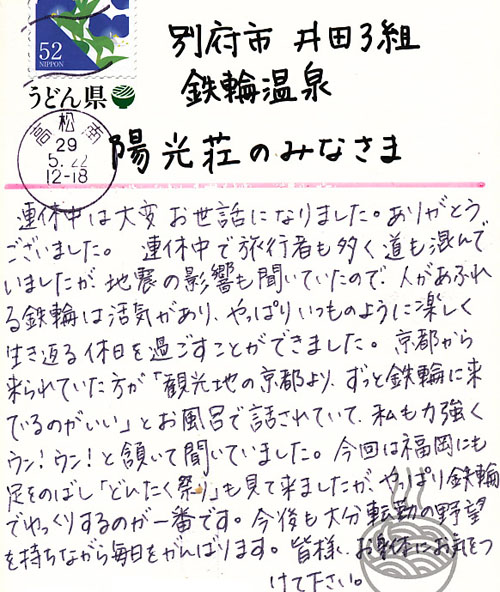 別府市 井田3組
鉄輪温泉
陽光荘のみなさま
52
NIPPON
うどん県
高松南
29
5.22
12-18
連休中は大変お世話になりました。ありがとう
ございました。 連休中で旅行者も多く道も混んで
いましたが、地震の影響も聞いていたので、人があふれ
る鉄輪は活気があり、やっぱりいつものように楽しく
生き返る休日を過ごすことができました。京都から
来られていた方が「観光地の京都より、ずっと鉄輪に来
ているのがいい」とお風呂で話されていて、私も力強く
ウン!ウン!と頷いて聞いていました。今回は福岡にも
足をのばし「どんたく祭り」も見て来ましたが、やっぱり鉄輪
でゆっくりするのが一番です。今後も大分転勤の野望
を持ちながら毎日をがんばります。皆様、お身体にお気をつ
けて下さい。